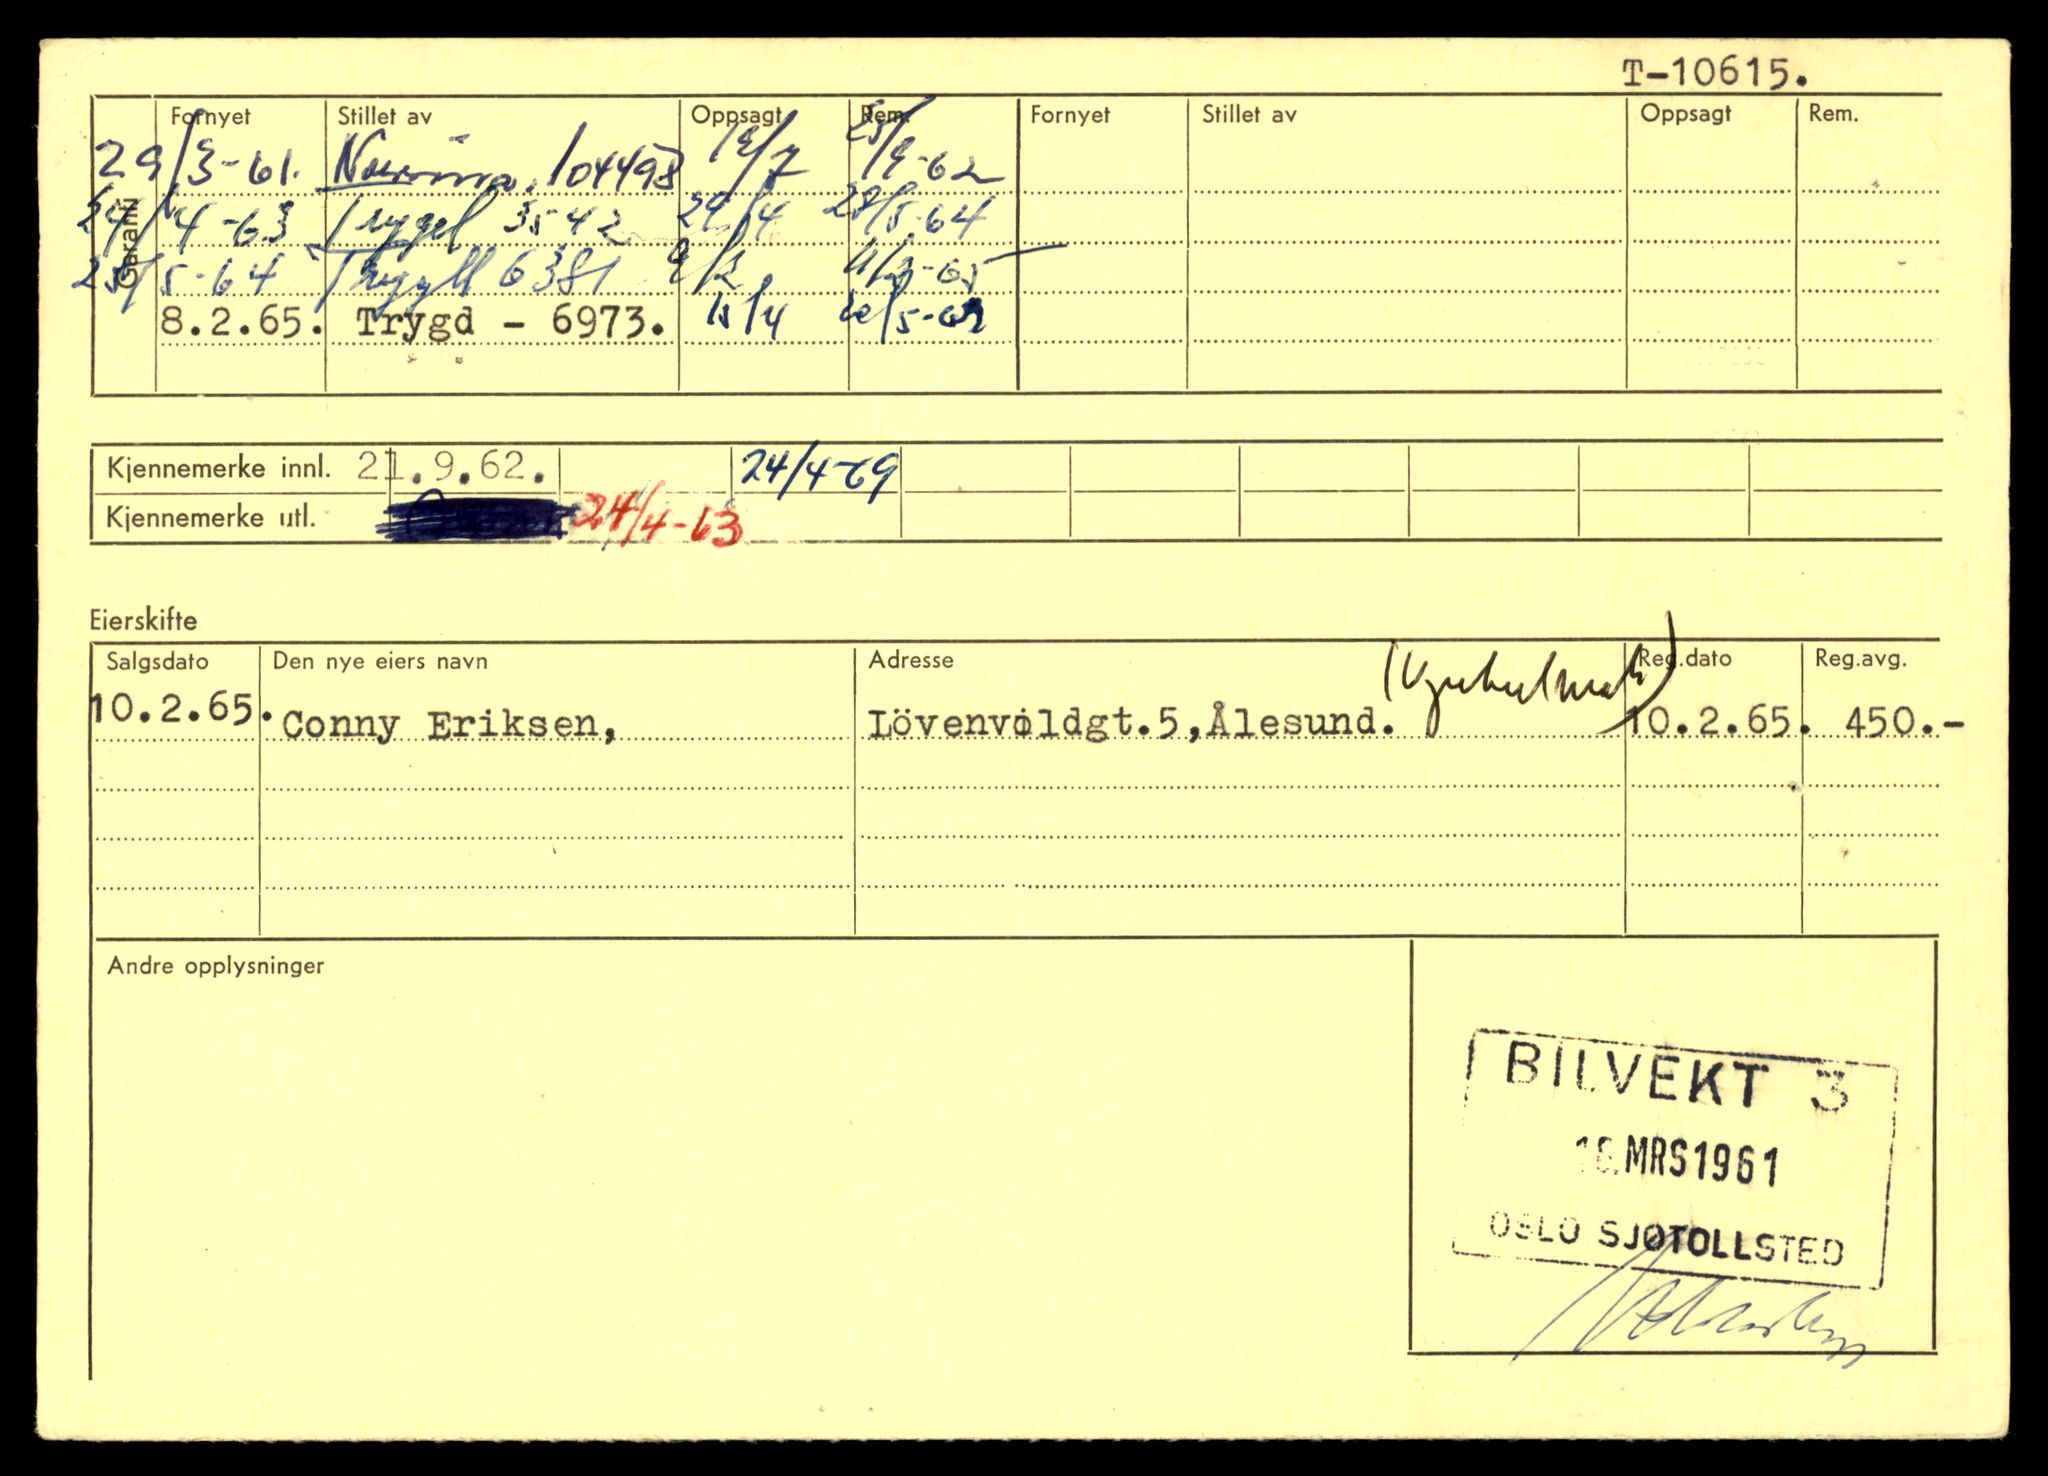 T-10615.
Fornyet Stillet av Oppsagt Rem. Fornyet Stillet av Oppsagt Rem.
Garanti
29/3-61. 104498 /7 25/9-62
24/4-63 3542 24/4 /5-64
/5-64 6381
8.2.65. Trygd - 6973. 15/4
Kjennemerke innl. 21.9.62. 24/4-69
Kjennemerke utl. 24/4-63
Eierskifte
Salgsdato Den nye eiers navn Adresse Reg.dato Reg.avg.
10.2.65. Conny Eriksen, Lövenvoldgt.5,Ålesund. 10.2.65. 450.-
Andre opplysninger
BILVEKT 3
MRS1961
OSLO SJØTOLLSTED